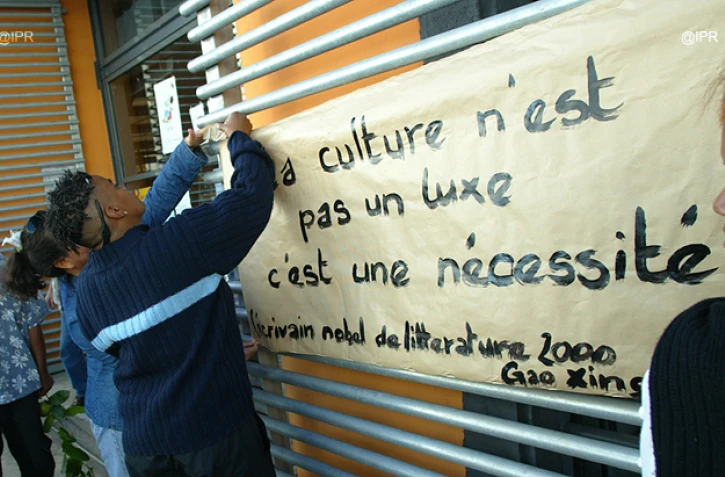 @IPR
@IPR
La culture n'est
pas un luxe
c'est une nécessité
L'écrivain nobel de litterature 2000
Gao xing